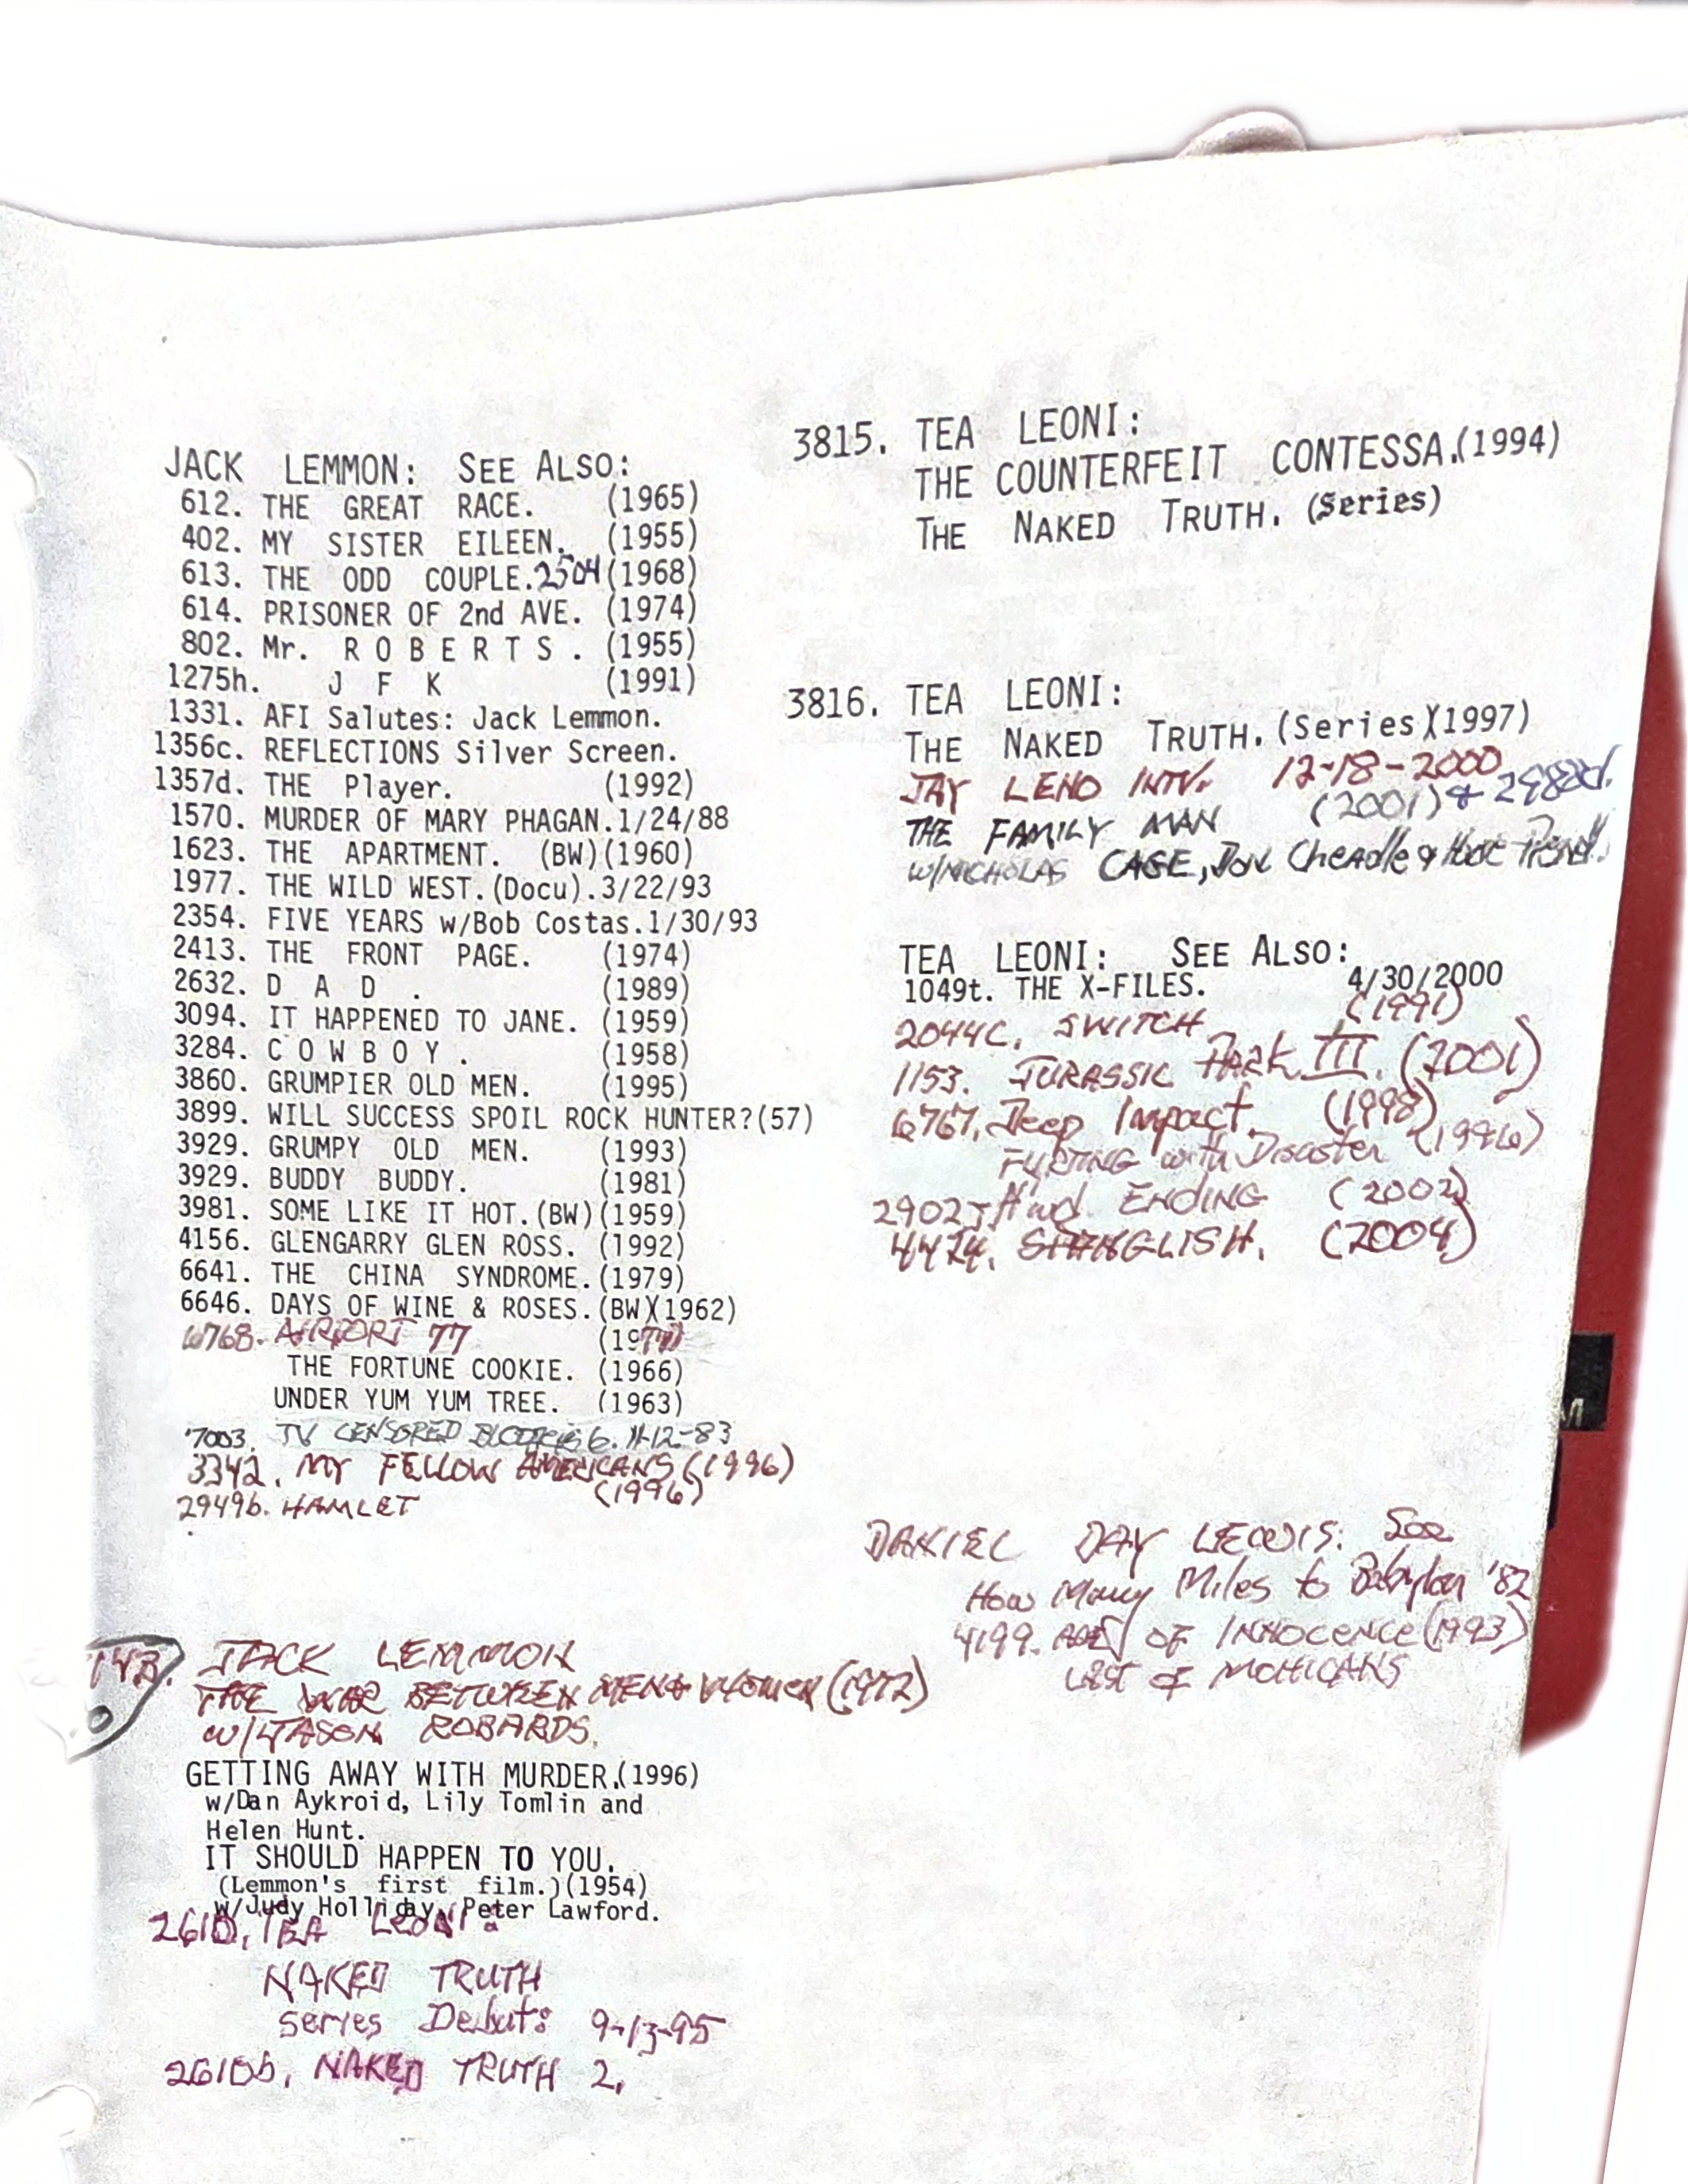 JACK LEMMON: SEE ALSO:
612. THE GREAT RACE. (1965)
402. MY SISTER EILEEN. (1955)
613. THE ODD COUPLE.2504(1968)
614. PRISONER OF 2nd AVE. (1974)
802. Mr. R O B E R T S . (1955)
1275h. J F K (1991)
1331. AFI Salutes: Jack Lemmon.
1356c. REFLECTIONS Silver Screen.
1357d. THE Player. (1992)
1570. MURDER OF MARY PHAGAN.1/24/88
1623. THE APARTMENT. (BW)(1960)
1977. THE WILD WEST.(Docu).3/22/93
2354. FIVE YEARS w/Bob Costas.1/30/93
2413. THE FRONT PAGE. (1974)
2632. D A D . (1989)
3094. IT HAPPENED TO JANE. (1959)
3284. C O W B O Y . (1958)
3860. GRUMPIER OLD MEN. (1995)
3899. WILL SUCCESS SPOIL ROCK HUNTER?(57)
3929. GRUMPY OLD MEN. (1993)
3929. BUDDY BUDDY. (1981)
3981. SOME LIKE IT HOT.(BW)(1959)
4156. GLENGARRY GLEN ROSS. (1992)
6641. THE CHINA SYNDROME.(1979)
6646. DAYS OF WINE & ROSES.(BW)(1962)
6768. AIRPORT 77 (1977)
THE FORTUNE COOKIE. (1966)
UNDER YUM YUM TREE. (1963)
7003. TV CENSORED BLOOPERS 6. 11-12-83
3342. MY FELLOW AMERICANS (1996)
2949b. HAMLET (1996)
JACK LEMMON
THE WAR BETWEEN MEN & WOMEN (1972)
W/JASON ROBARDS.
GETTING AWAY WITH MURDER.(1996)
w/Dan Aykroid, Lily Tomlin and
Helen Hunt.
IT SHOULD HAPPEN TO YOU.
(Lemmon's first film.)(1954)
w/Judy Holliday, Peter Lawford.
2610. TEA LEONI:
NAKED TRUTH
series Debut: 9-13-95
2610b. NAKED TRUTH 2.
3815. TEA LEONI:
THE COUNTERFEIT CONTESSA.(1994)
THE NAKED TRUTH. (Series)
3816. TEA LEONI:
THE NAKED TRUTH.(Series)(1997)
JAY LENO INTV. 12-18-2000
THE FAMILY MAN (2001) &
W/NICHOLAS CAGE, Don Cheadle &
TEA LEONI: SEE ALSO:
1049t. THE X-FILES. 4/30/2000
2044c. SWITCH (1991)
1153. JURASSIC PARK III. (2001)
6767. Deep Impact. (1998)
FLIRTING with Disaster (1996)
2902 Hwd. ENDING (2002)
4424. SPANGLISH. (2004)
DANIEL DAY LEWIS: See
How Many Miles to Babylon '82
4199. AGE OF INNOCENCE (1993)
LAST OF MOHICANS